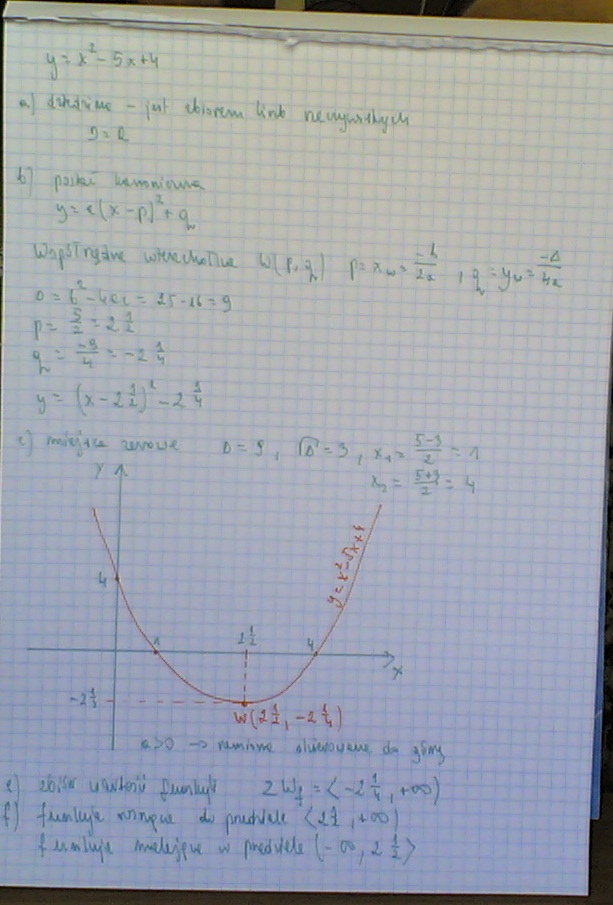 y = x² - 5x + 4
a) dziedzina - jest zbiorem liczb rzeczywistych
D = R
b) postać kanoniczna
y = a(x - p)² + q
Współrzędne wierzchołka W(p, q) p = x_w = -b/2a , q = y_w = -Δ/4a
Δ = b² - 4ac = 25 - 16 = 9
p = 5/2 = 2 1/2
q = -9/4 = -2 1/4
y = (x - 2 1/2)² - 2 1/4
c) miejsca zerowe Δ = 9 , √Δ = 3 , x₁ = (5-3)/2 = 1
x₂ = (5+3)/2 = 4
y
y = x² - 5x + 4
4
1
2 1/2
4
x
W(2 1/2, -2 1/4)
a > 0 → ramiona skierowane do góry
e) zbiór wartości funkcji ZW_f = <-2 1/4, +∞)
f) funkcja rosnąca w przedziale <2 1/2, +∞)
funkcja malejąca w przedziale (-∞, 2 1/2>